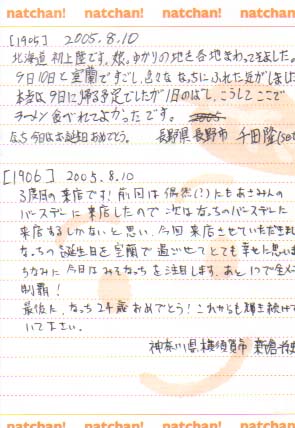 natchan! natchan! natchan! natchan! natchan!
[1905] 2005.8.10
北海道初上陸です。娘、ゆかりの地を各地まわってきました。
9日10日と室蘭ですごし、色々ななっちにふれた気がしました
本当は9日に帰る予定でしたが1日のばし、こうしてここで
ラーメン食べれてよかったです。
なち今日はお誕生日おめでとう。 長野県長野市 千田隆
[1906] 2005.8.10
3度目の来店です!前回は偶然(?)にもあさみんの
バースデーに来店したので次はなっちのバースデーに
来店するしかないと思い、今回来店させていただきまし
なっちの誕生日を室蘭で過ごせてとても幸せに思いま
ちなみに今日はみそなっちを注目します。あと1つで全メニ
制覇!
最後に、なっち24歳おめでとう!これからも輝き続けて
いて下さい。
神奈川県横須賀市 新倉
natchan! natchan! natchan! natchan! natchan!